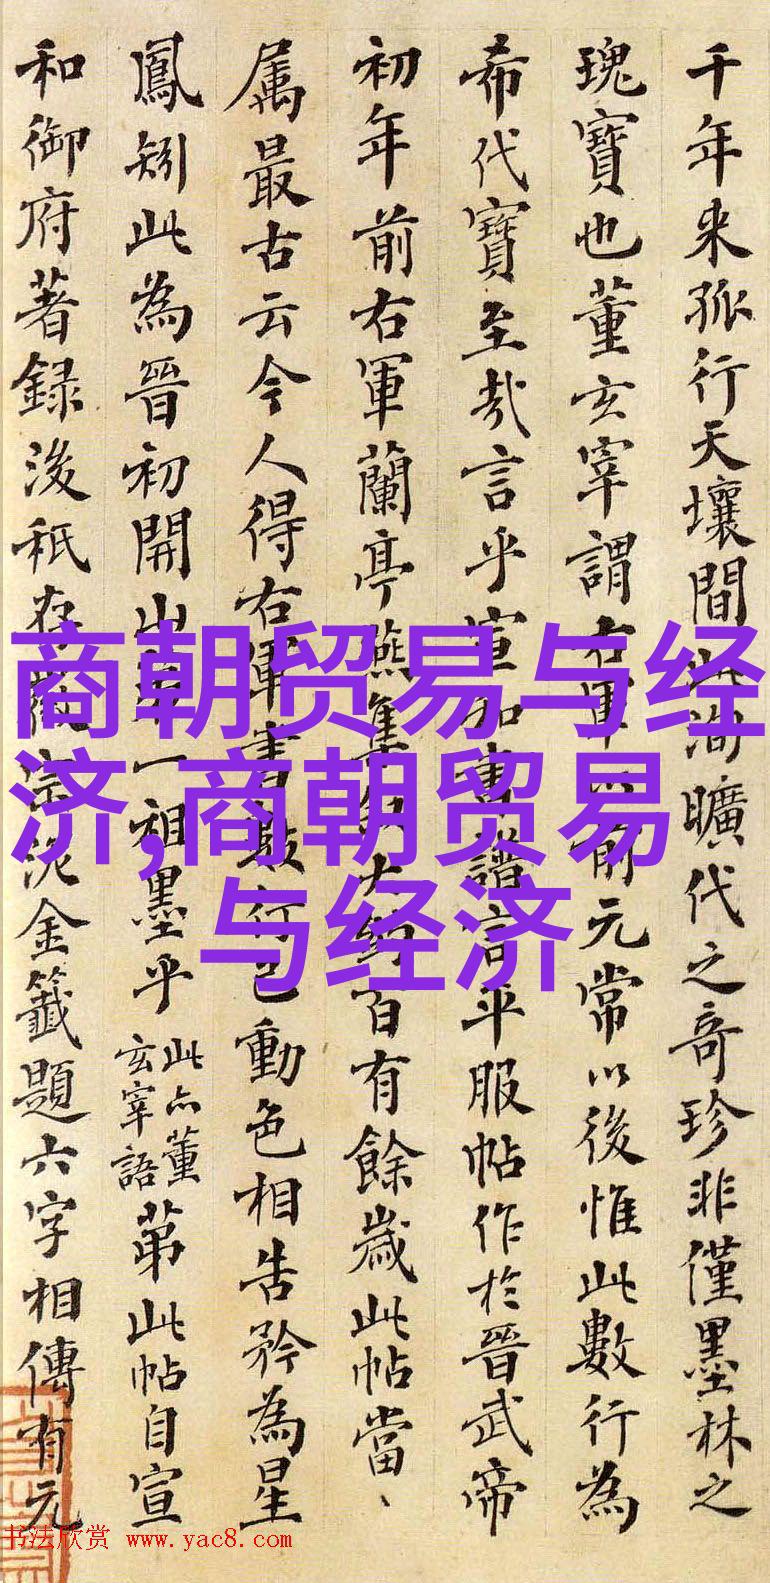 千年来孤行天壤間此洵曠代之奇珍非僅墨林之
瑰寶也董玄宰謂右軍以前元常以後惟此數行為
希代寶至哉言乎宣和書譜言平服帖作於晉武帝
初年前右軍蘭亭燕集叙大約百有餘歲此帖當
属最古云今人得右軍書數行已動色相告矜為星
鳳矧此為晉初開山第一祖墨乎
此亦董
玄宰語
苐此帖自宣
和御府著録後秖存徽宗泥金籤題六字相傳有元
商朝贸易与经
济,商朝贸易
与经济
书法欣赏 www.yac8.com